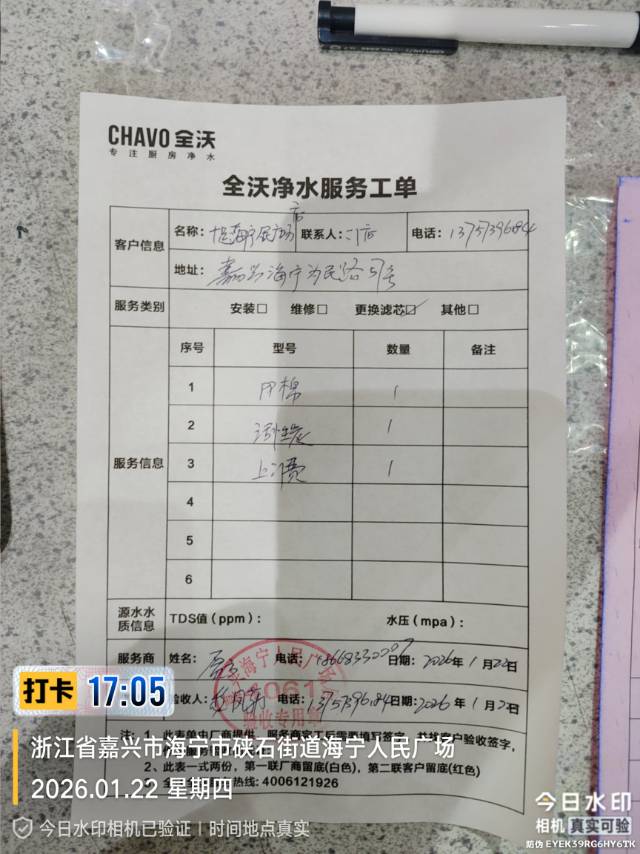 CHAVO 全沃
专注厨房净水
全沃净水服务工单
客户信息
名称: 店 联系人: 门店 电话: 13757396184
地址: 嘉兴海宁为民路57号
服务类别 安装□ 维修□ 更换滤芯☑ 其他□
服务信息
序号 型号 数量 备注
1 PP棉 1
2 活性炭 1
3 上门费 1
4
5
6
源水水质信息
TDS值（ppm）: 水压（mpa）:
服务商 姓名: 电话: 日期: 2026年1月22日
验收人: 电话: 13757396184 日期: 2026年1月22日
海宁人民广场
验收专用章
注: 1、此表单由厂商提供
2、此表一式两份，第一联厂商留底(白色)，第二联客户留底(红色)
热线: 4006121926
打卡 17:05
浙江省嘉兴市海宁市硖石街道海宁人民广场
2026.01.22 星期四
今日水印相机已验证 | 时间地点真实
今日水印
相机 真实可验
防伪 EYEK39RG6HY6TK